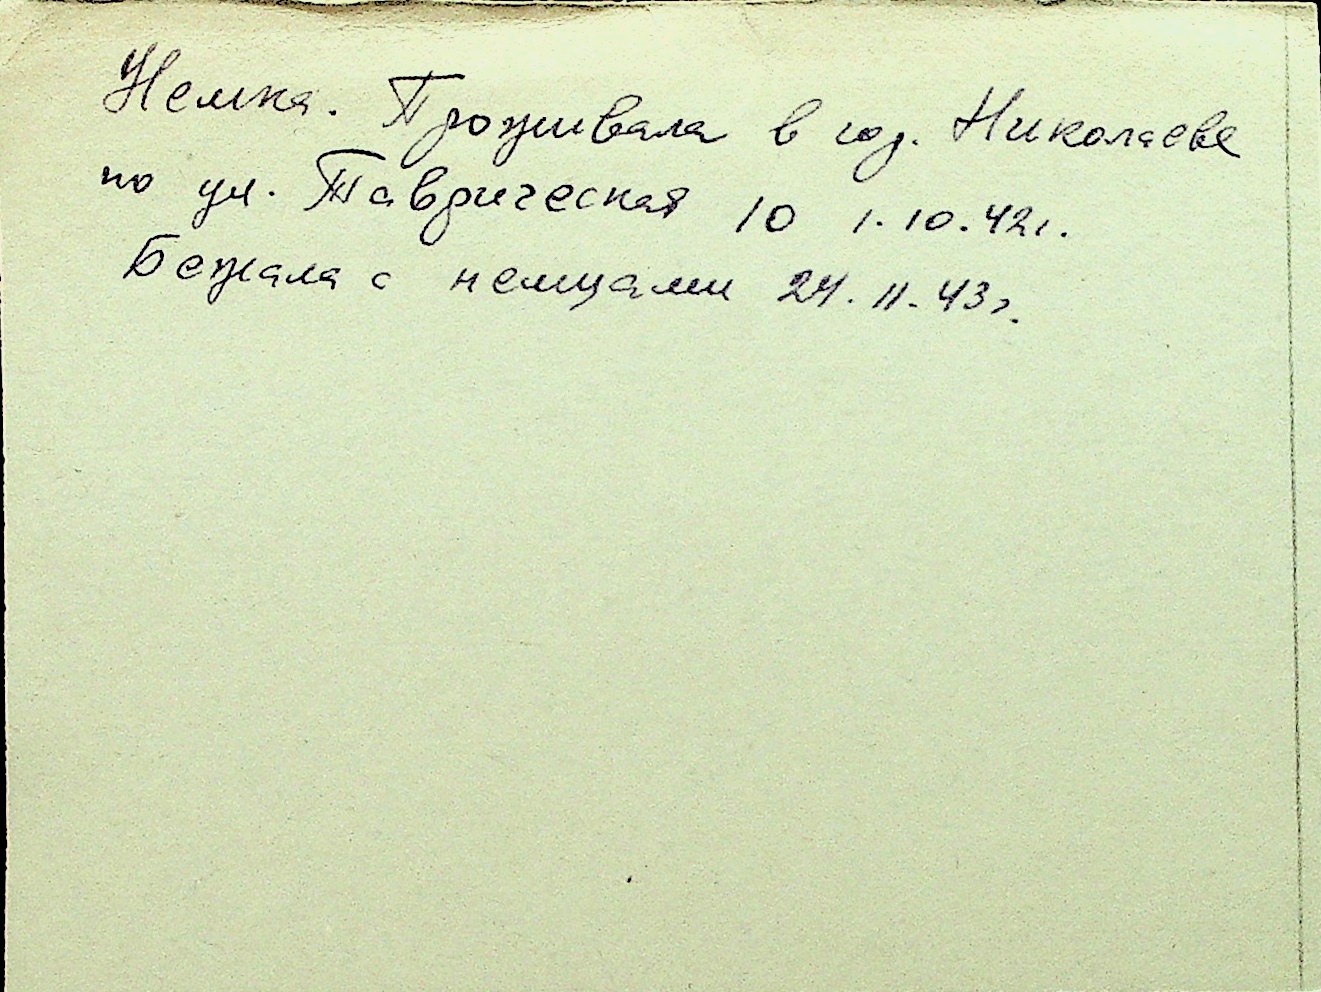 Немка. Проживала в гор. Николаеве
по ул. Таврическая 10 1.10.42г.
Бежала с немцами 24.11.43г.